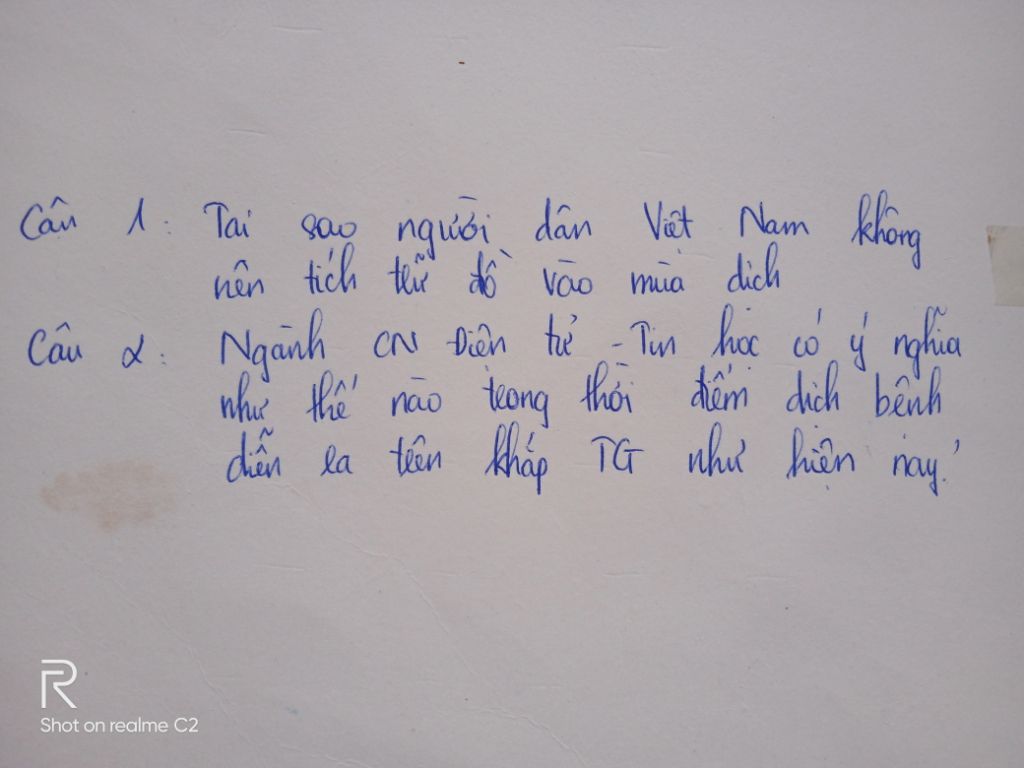 Câu 1: Tại sao người dân Việt Nam không
nên tích trữ đồ vào mùa dịch
Câu 2: Ngành CN Điện tử - Tin học có ý nghĩa
như thế nào trong thời điểm dịch bệnh
diễn ra trên khắp TG như hiện nay?
R
Shot on realme C2